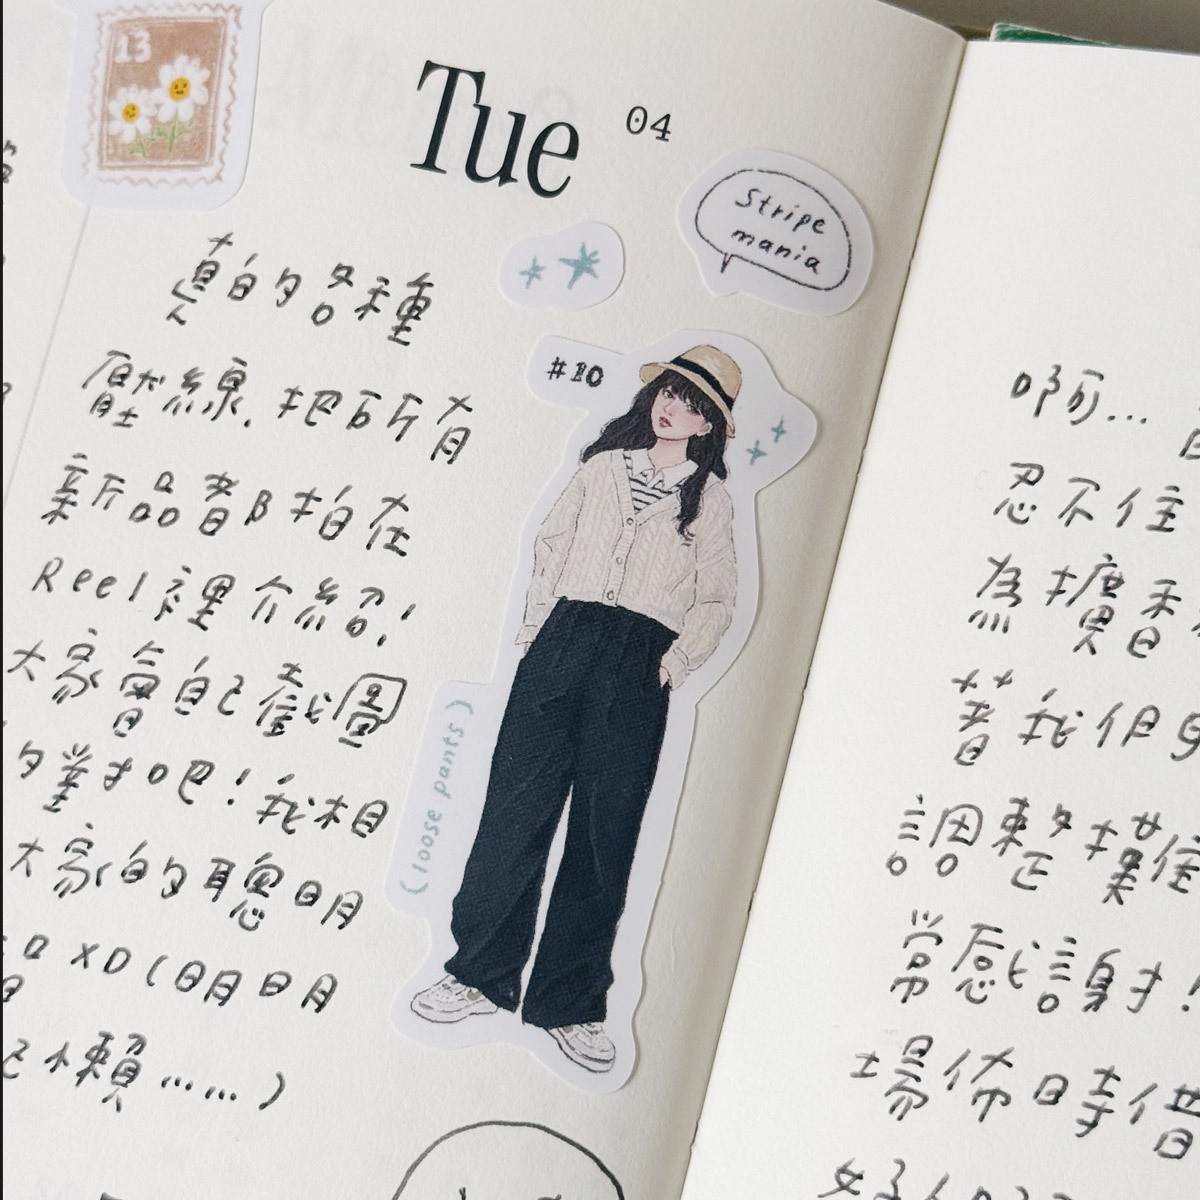 13
Tue 04
Stripe
mania
#10
(loose pants)
真的各種
壓線,把所有
新品都拍在
Reel裡介紹!
大家會自己截圖
的對吧!我相
大家的聰明
XD(明明
己懶……)
啊…
忍不住
為擴香
著我們
調整攤位
常感謝!
場佈時借